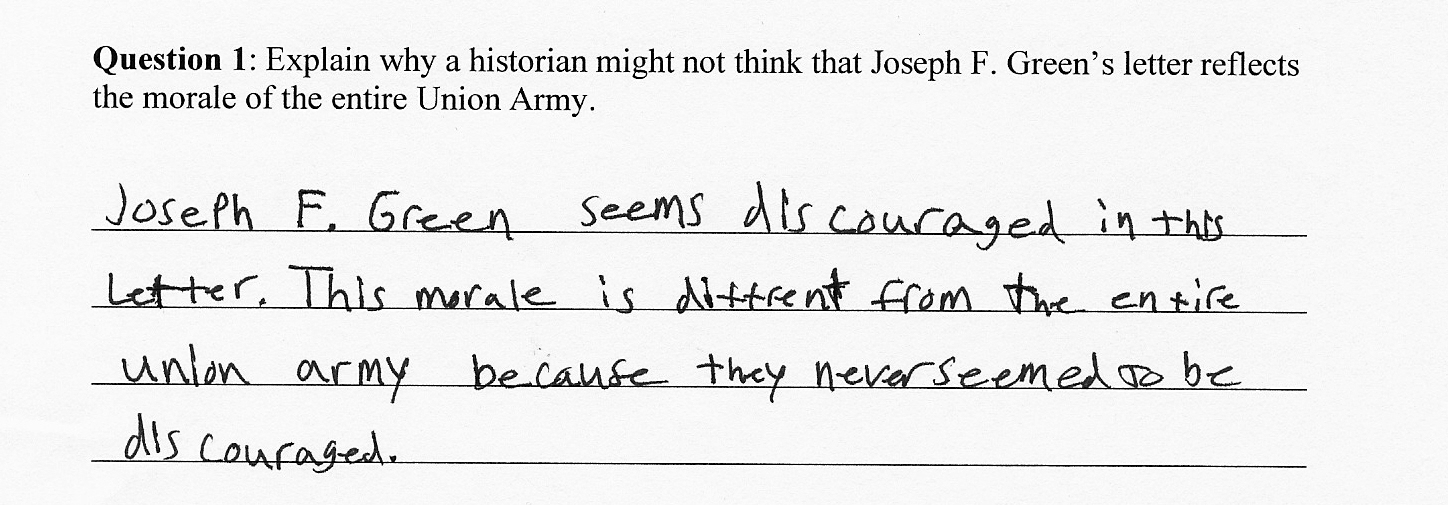 Question 1: Explain why a historian might not think that Joseph F. Green's letter reflects
the morale of the entire Union Army.
Joseph F. Green seems discouraged in this
Letter. This morale is diffrent from the entire
union army because they never seemed to be
discouraged.